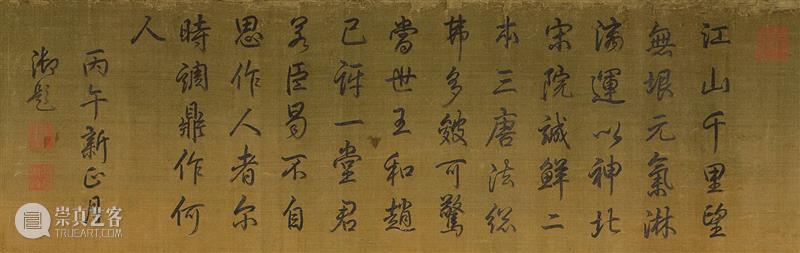 江山千里望
無垠元氣淋
漓運以神北
宋院誠鮮二
本三唐法總
弗多皴可驚
當世王和趙
已訝一堂君
若臣曷不自
思作人者尔
時調鼎作何
人
丙午新正月
御題
崇真艺客
TRUEART.COM